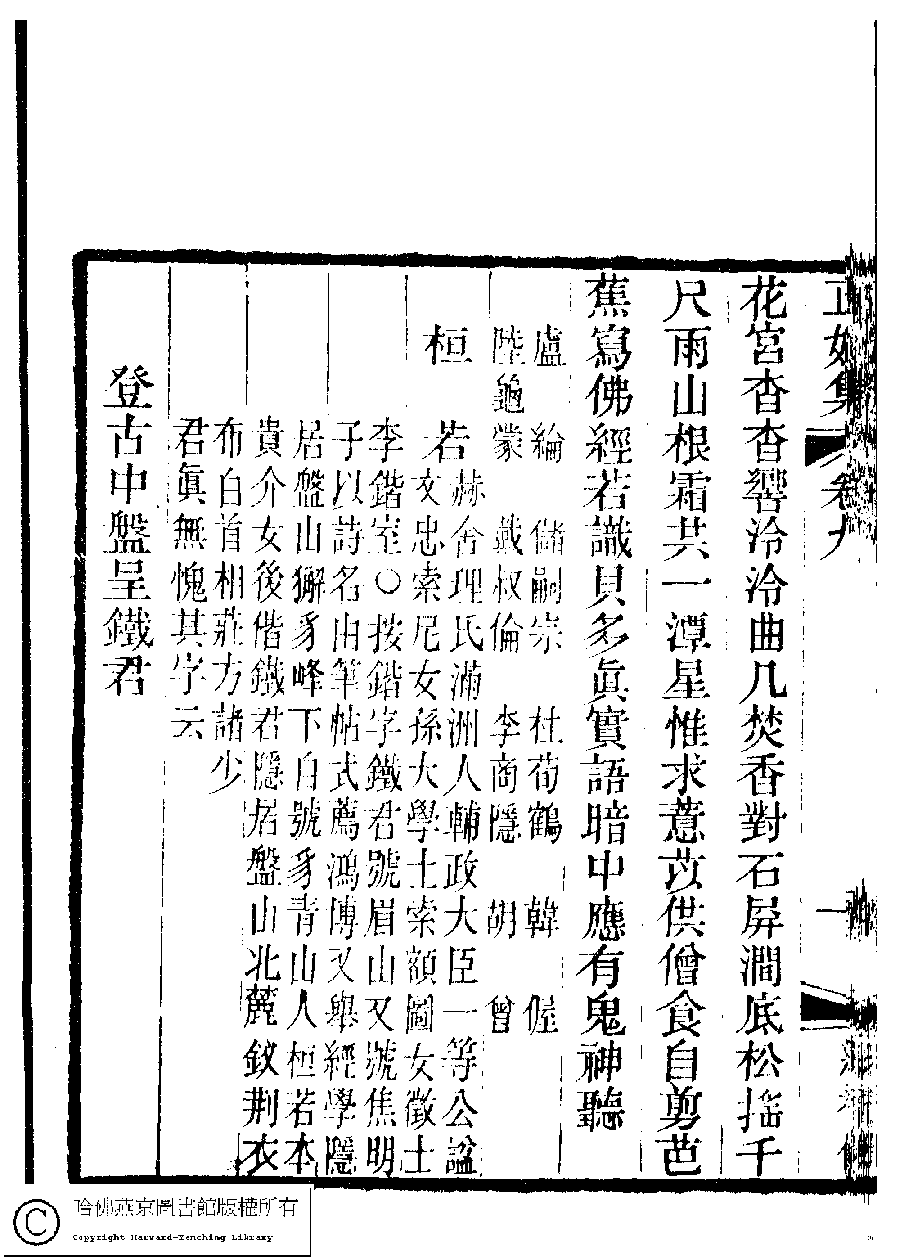 正始集 卷九 一
花宮杳杳響泠泠曲几焚香對石屏澗底松搖千
尺雨山根霜共一潭星惟求薏苡供僧食自剪芭
蕉寫佛經若識貝多眞實語暗中應有鬼神聽
盧綸 儲嗣宗 杜荀鶴 韓偓
陸龜蒙 戴叔倫 李商隱 胡曾
桓若
赫舍理氏滿洲人輔政大臣一等公諡
文忠索尼女孫大學士索額圖女徵士
李鍇室○按鍇字鐵君號眉山又號焦明
子以詩名由筆帖式薦鴻博又舉經學隱
居盤山獬豸峰下自號豸青山人桓若本
貴介女後偕鐵君隱居盤山北麓釵荆衣
布白首相莊方諸少
君眞無愧其字云
登古中盤呈鐵君
哈佛燕京圖書館版權所有
Copyright Harvard-Yenching Library